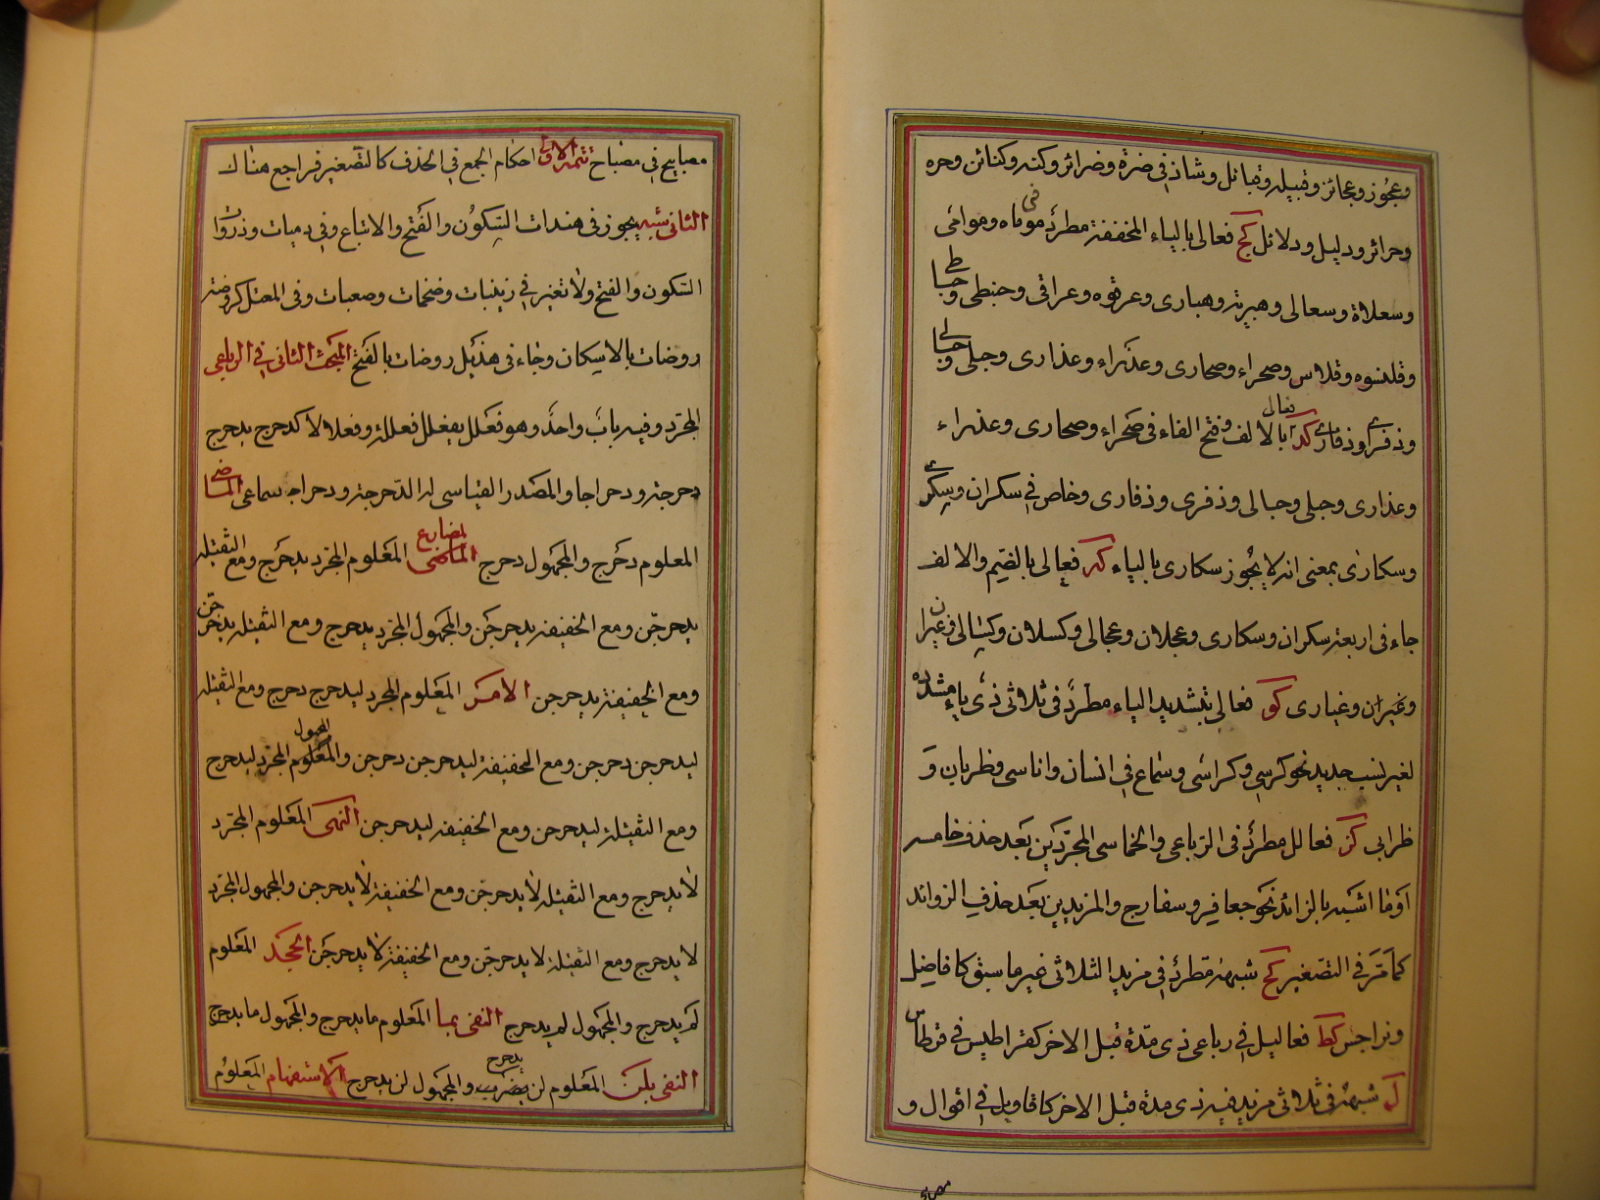 وعجوز وعجائز وقبيله وقبائل وشاذ في ضرة وضرائر وكنه وكنائن وحره
وحرائر ودليل ودلائل كج فعالى بالياء المخففة مطرد في موماه وموامى
وسعلاة وسعالى وهبريه وهبارى وعرقوه وعراقى وحبنطى وحباطى
وقلنسوه وقلاس وصحراء وصحارى وعذراء وعذارى وحبلى وحبالى
وذفرى وذفارى كد فعالى بالالف وفتح الفاء في صحراء وصحارى وعذراء
وعذارى وحبلى وحبالى وذفرى وذفارى وخاص في سكران وسكرى
وسكارى بمعنى انه لا يجوز سكارى بالياء كه فعالى بالضم والالف
جاء في اربعة سكران وسكارى وعجلان وعجالى وكسلان وكسالى وغيران
وغيران وغيارى كو فعالى بتشديد الياء مطرد في ثلاثى ذى ياء مشدده
لغير نسب جديد نحو كرسى وكراسى وسماع في انسان واناسى وظربان و
ظرابى كز فعالل مطرد في الرباعى والخماسى المجردين بعد حذف خامسه
او ما اشبه بالزائد نحو جعافر وسفارج والمزيدين بعد حذف الزوائد
كما مر في التصغير كح شبهه مطرد في مزيد الثلاثى غير ما سبق كافاضل
ونراجس كط فعاليل في رباعى ذى مدة قبل الاخر كقراطيس في قرطاس
ل شبهه في ثلاثى مزيد فيه ذى مدة قبل الاخر كاقاويل في اقوال و
مصا
مصابيح في مصباح تتمه الاولى احكام الجمع في الحذف كالتصغير فراجع هناك
الثانى شبه يجوز في هندات السكون والفتح والاتباع وفي دميات وذروات
السكون والفتح ولا تغير في زينبات وضخمات وصعبات وفي المعتل كروضة
روضات بالاسكان وجاء في هذيل روضات بالفتح المبحث الثانى في الرباعى
المجرد وفيه باب واحد وهو فعلل يفعلل فعللة وفعلالا كدحرج يدحرج
دحرجة ودحراجا والمصدر القياسى له الدحرجة ودحراج سماعى الماضى
المعلوم دحرج والمجهول دحرج المضارع المعلوم المجرد يدحرج ومع الثقيله
يدحرجن ومع الخفيفة يدحرجن والمجهول المجرد يدحرج ومع الثقيله يدحرجن
ومع الخفيفة يدحرجن الامر المعلوم المجرد ليدحرج دحرج ومع الثقيله
ليدحرجن دحرجن ومع الخفيفة ليدحرجن دحرجن والمجهول المجرد ليدحرج
ومع الثقيلة ليدحرجن ومع الخفيفة ليدحرجن النهى المعلوم المجرد
لا يدحرج ومع الثقيله لا يدحرجن ومع الخفيفة لا يدحرجن والمجهول المجرد
لا يدحرج ومع الثقيلة لا يدحرجن ومع الخفيفة لا يدحرجن الجحد المعلوم
لم يدحرج والمجهول لم يدحرج النفى بما المعلوم ما يدحرج والمجهول ما يدحرج
النفى بلن المعلوم لن يدحرج والمجهول لن يدحرج الاستفهام المعلوم